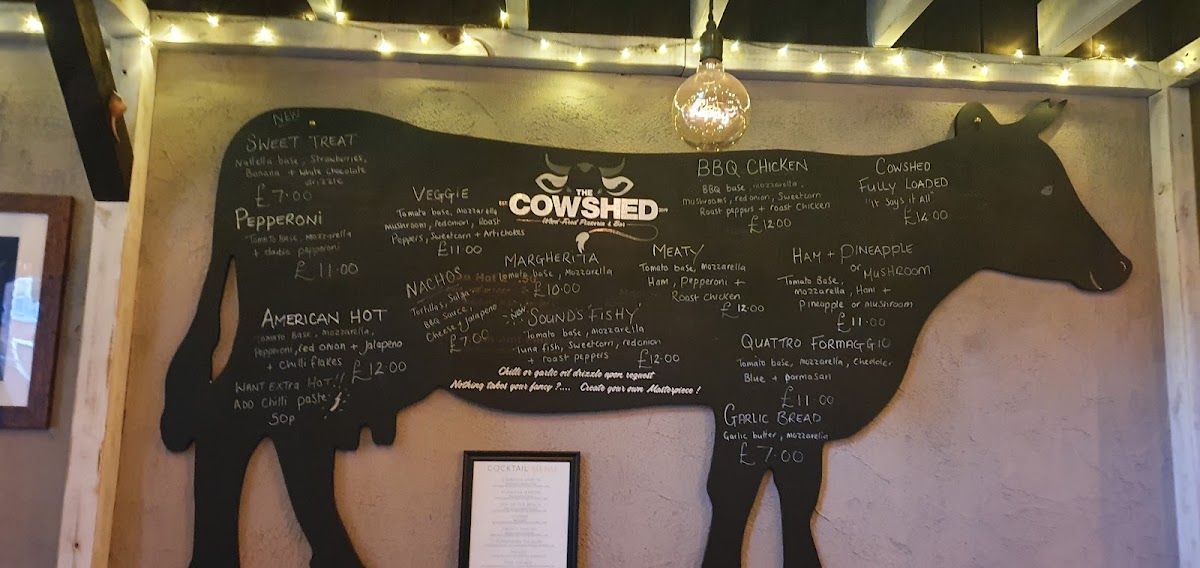 NEW
SWEET TREAT
Nutella base, Strawberries,
Banana + White Chocolate
drizzle
£7.00
PEPPERONI
Tomato base, Mozzarella
+ double pepperoni
£11.00
AMERICAN HOT
Tomato Base, Mozzarella,
Pepperoni, red onion + Jalapeno
+ chilli flakes
£12.00
WANT EXTRA HOT!!
ADD Chilli paste
50p
VEGGIE
Tomato base, Mozzarella
Mushroom, red onion, Roast
Peppers, Sweetcorn + Artichokes
£11.00
NACHOS
Tortillas, Salsa
BBQ Sauce,
Cheese + Jalapeno
£7.00
THE
COWSHED
Wood-Fired Pizzeria & Bar
MARGHERITA
Tomato base, Mozzarella
£10.00
NEW
'SOUNDS FISHY'
Tomato base, Mozzarella
Tuna fish, Sweetcorn, red onion
+ roast peppers
£12.00
Chilli or garlic oil drizzle upon request
Nothing takes your fancy?.... Create your own Masterpiece!
BBQ CHICKEN
BBQ base, mozzarella,
mushrooms, red onion, Sweetcorn
Roast peppers + roast chicken
£12.00
MEATY
Tomato base, mozzarella
Ham, Pepperoni +
Roast Chicken
£12.00
COWSHED
FULLY LOADED
"it Says it All"
£14.00
HAM + PINEAPPLE
or MUSHROOM
Tomato Base,
mozzarella, Ham +
Pineapple or mushroom
£11.00
QUATTRO FORMAGGIO
Tomato base, mozzarella, Cheddar
Blue + parmasan
£11.00
GARLIC BREAD
Garlic butter, mozzarella
£7.00
COCKTAIL MENU